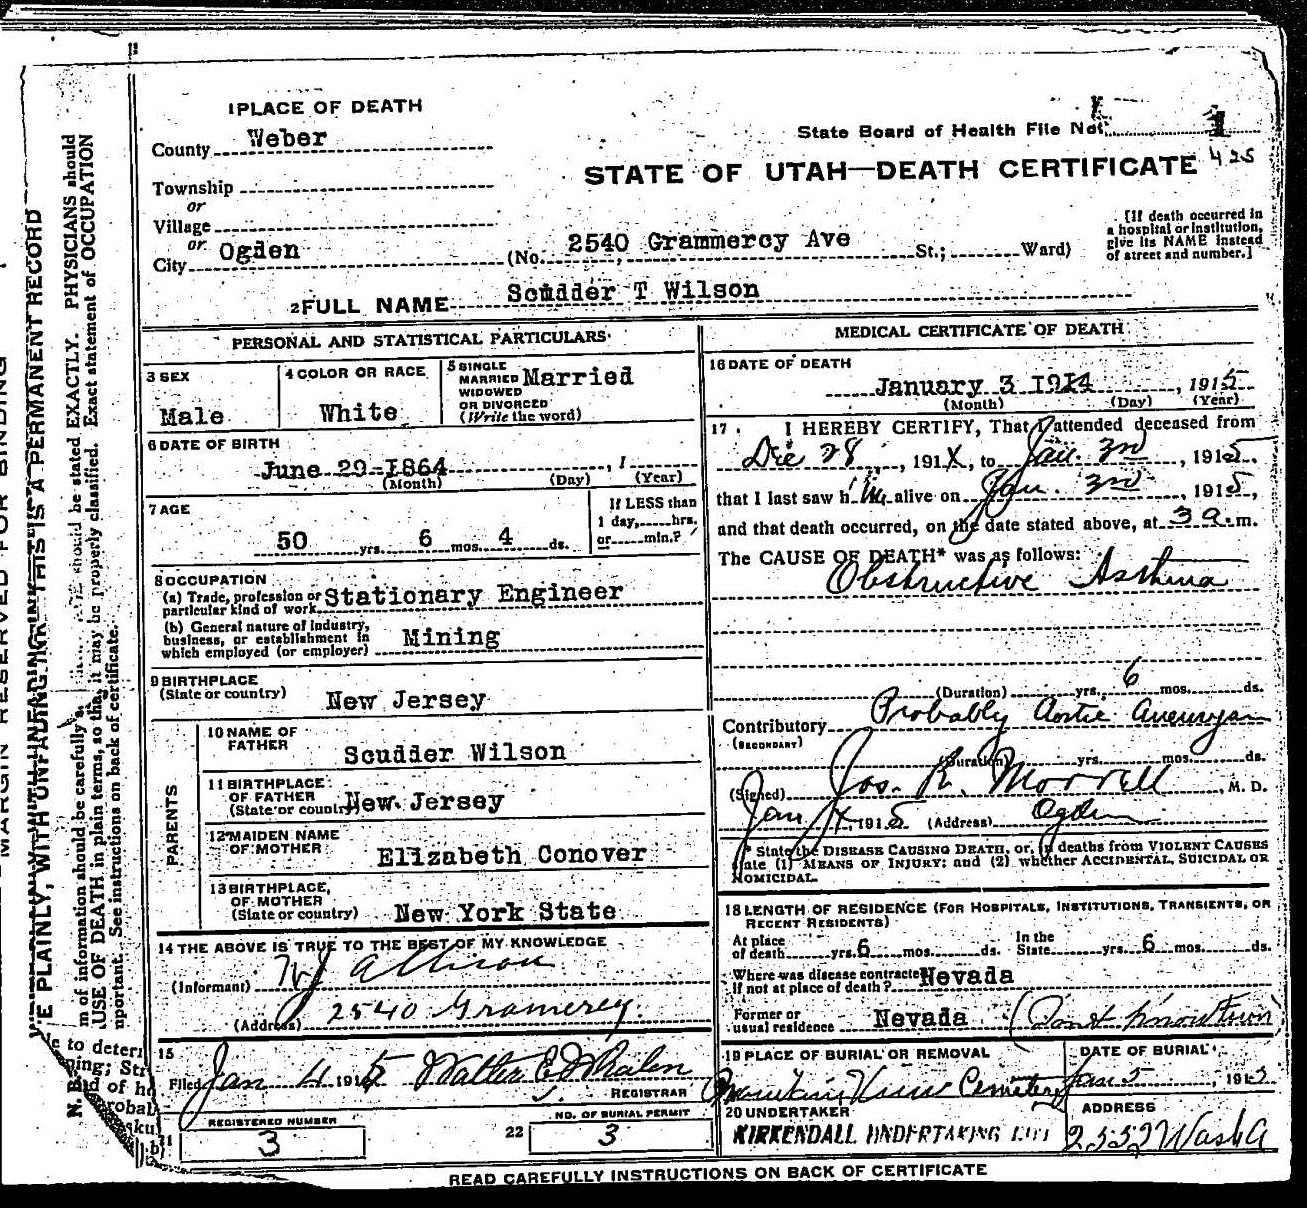 1 PLACE OF DEATH
County Weber
State Board of Health File No. 1
425
STATE OF UTAH—DEATH CERTIFICATE
Township
or
Village
or
City Ogden (No. 2540 Grammercy Ave St.; Ward)
[If death occurred in
a hospital or institution,
give its NAME instead
of street and number.]
2 FULL NAME Scudder T Wilson
PERSONAL AND STATISTICAL PARTICULARS
3 SEX
Male
4 COLOR OR RACE
White
5 SINGLE
MARRIED
WIDOWED
OR DIVORCED
(Write the word)
Married
6 DATE OF BIRTH
June 29-1864, 1
(Month) (Day) (Year)
7 AGE
50 yrs. 6 mos. 4 ds.
If LESS than
1 day, hrs.
or min.?
8 OCCUPATION
(a) Trade, profession or
particular kind of work Stationary Engineer
(b) General nature of industry,
business, or establishment in
which employed (or employer) Mining
9 BIRTHPLACE
(State or country) New Jersey
PARENTS
10 NAME OF
FATHER
Scudder Wilson
11 BIRTHPLACE
OF FATHER
(State or country) New Jersey
12 MAIDEN NAME
OF MOTHER
Elizabeth Conover
13 BIRTHPLACE,
OF MOTHER
(State or country) New York State
14 THE ABOVE IS TRUE TO THE BEST OF MY KNOWLEDGE
(Informant) W J Allison
(Address) 2540 Gramercy.
15
Filed Jan 4 1915 Walter E Whalen
REGISTRAR
REGISTERED NUMBER
21
3
NO. OF BURIAL PERMIT
22
3
MEDICAL CERTIFICATE OF DEATH
16 DATE OF DEATH
January 3 1914, 1915
(Month) (Day) (Year)
17 I HEREBY CERTIFY, That I attended deceased from
Dec 28, 191X, to Jan. 3rd, 1915,
that I last saw him alive on Jan. 3rd, 1915,
and that death occurred, on the date stated above, at 3 a. m.
The CAUSE OF DEATH* was as follows:
Obstructive Asthma
(Duration) yrs. 6 mos. ds.
Contributory Probably Aortic Aneurysm
(SECONDARY)
(Duration) yrs. mos. ds.
(Signed) Jos. R. Morrell, M. D.
Jan 4, 1915 (Address) Ogden
* State the DISEASE CAUSING DEATH, or, in deaths from VIOLENT CAUSES
state (1) MEANS OF INJURY; and (2) whether ACCIDENTAL, SUICIDAL OR
HOMICIDAL.
18 LENGTH OF RESIDENCE (FOR HOSPITALS, INSTITUTIONS, TRANSIENTS, OR
RECENT RESIDENTS)
At place
of death yrs. 6 mos. ds. In the
State yrs. 6 mos. ds.
Where was disease contracted
If not at place of death? Nevada
Former or
usual residence Nevada (Dont know town)
19 PLACE OF BURIAL OR REMOVAL
Mountain View Cemetery
DATE OF BURIAL
Jan 5, 1915
20 UNDERTAKER
KIRKENDALL UNDERTAKING
ADDRESS
2552 Wash A
READ CAREFULLY INSTRUCTIONS ON BACK OF CERTIFICATE
MARGIN RESERVED FOR BINDING
PLAINLY, WITH UNFADING INK—THIS IS A PERMANENT RECORD
of information should be carefully should be stated EXACTLY. PHYSICIANS should
CAUSE OF DEATH in plain terms, so that it may be properly classified. Exact statement of OCCUPATION
important. See instructions on back of certificate.
N. B.